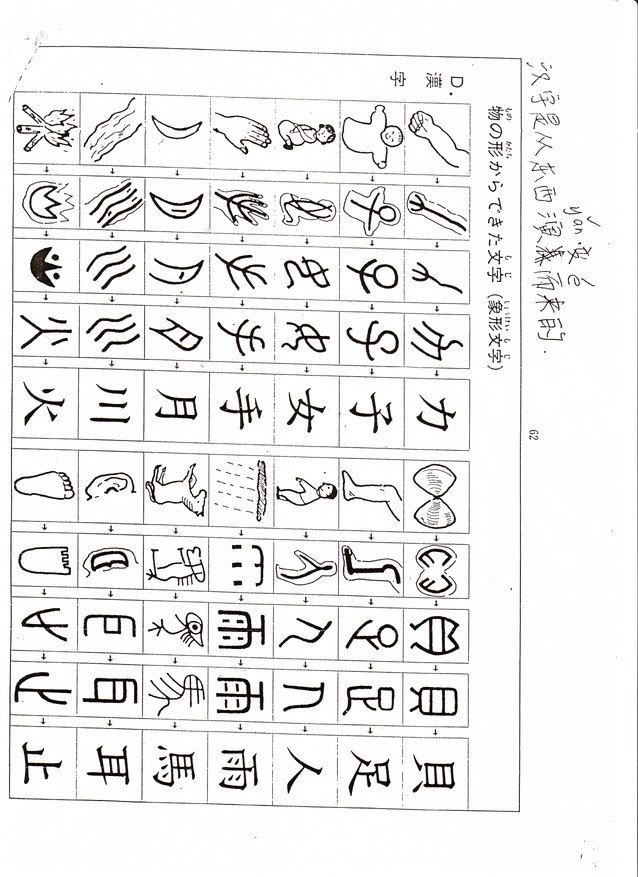 汉字是从东西演变而来的.
yǎn
62
物の形からできた文字 (象形文字)
もの かたち もじ しょうけいもじ
D. 漢字
力 貝
子 足
女 人
手 雨
月 馬
川 耳
火 止